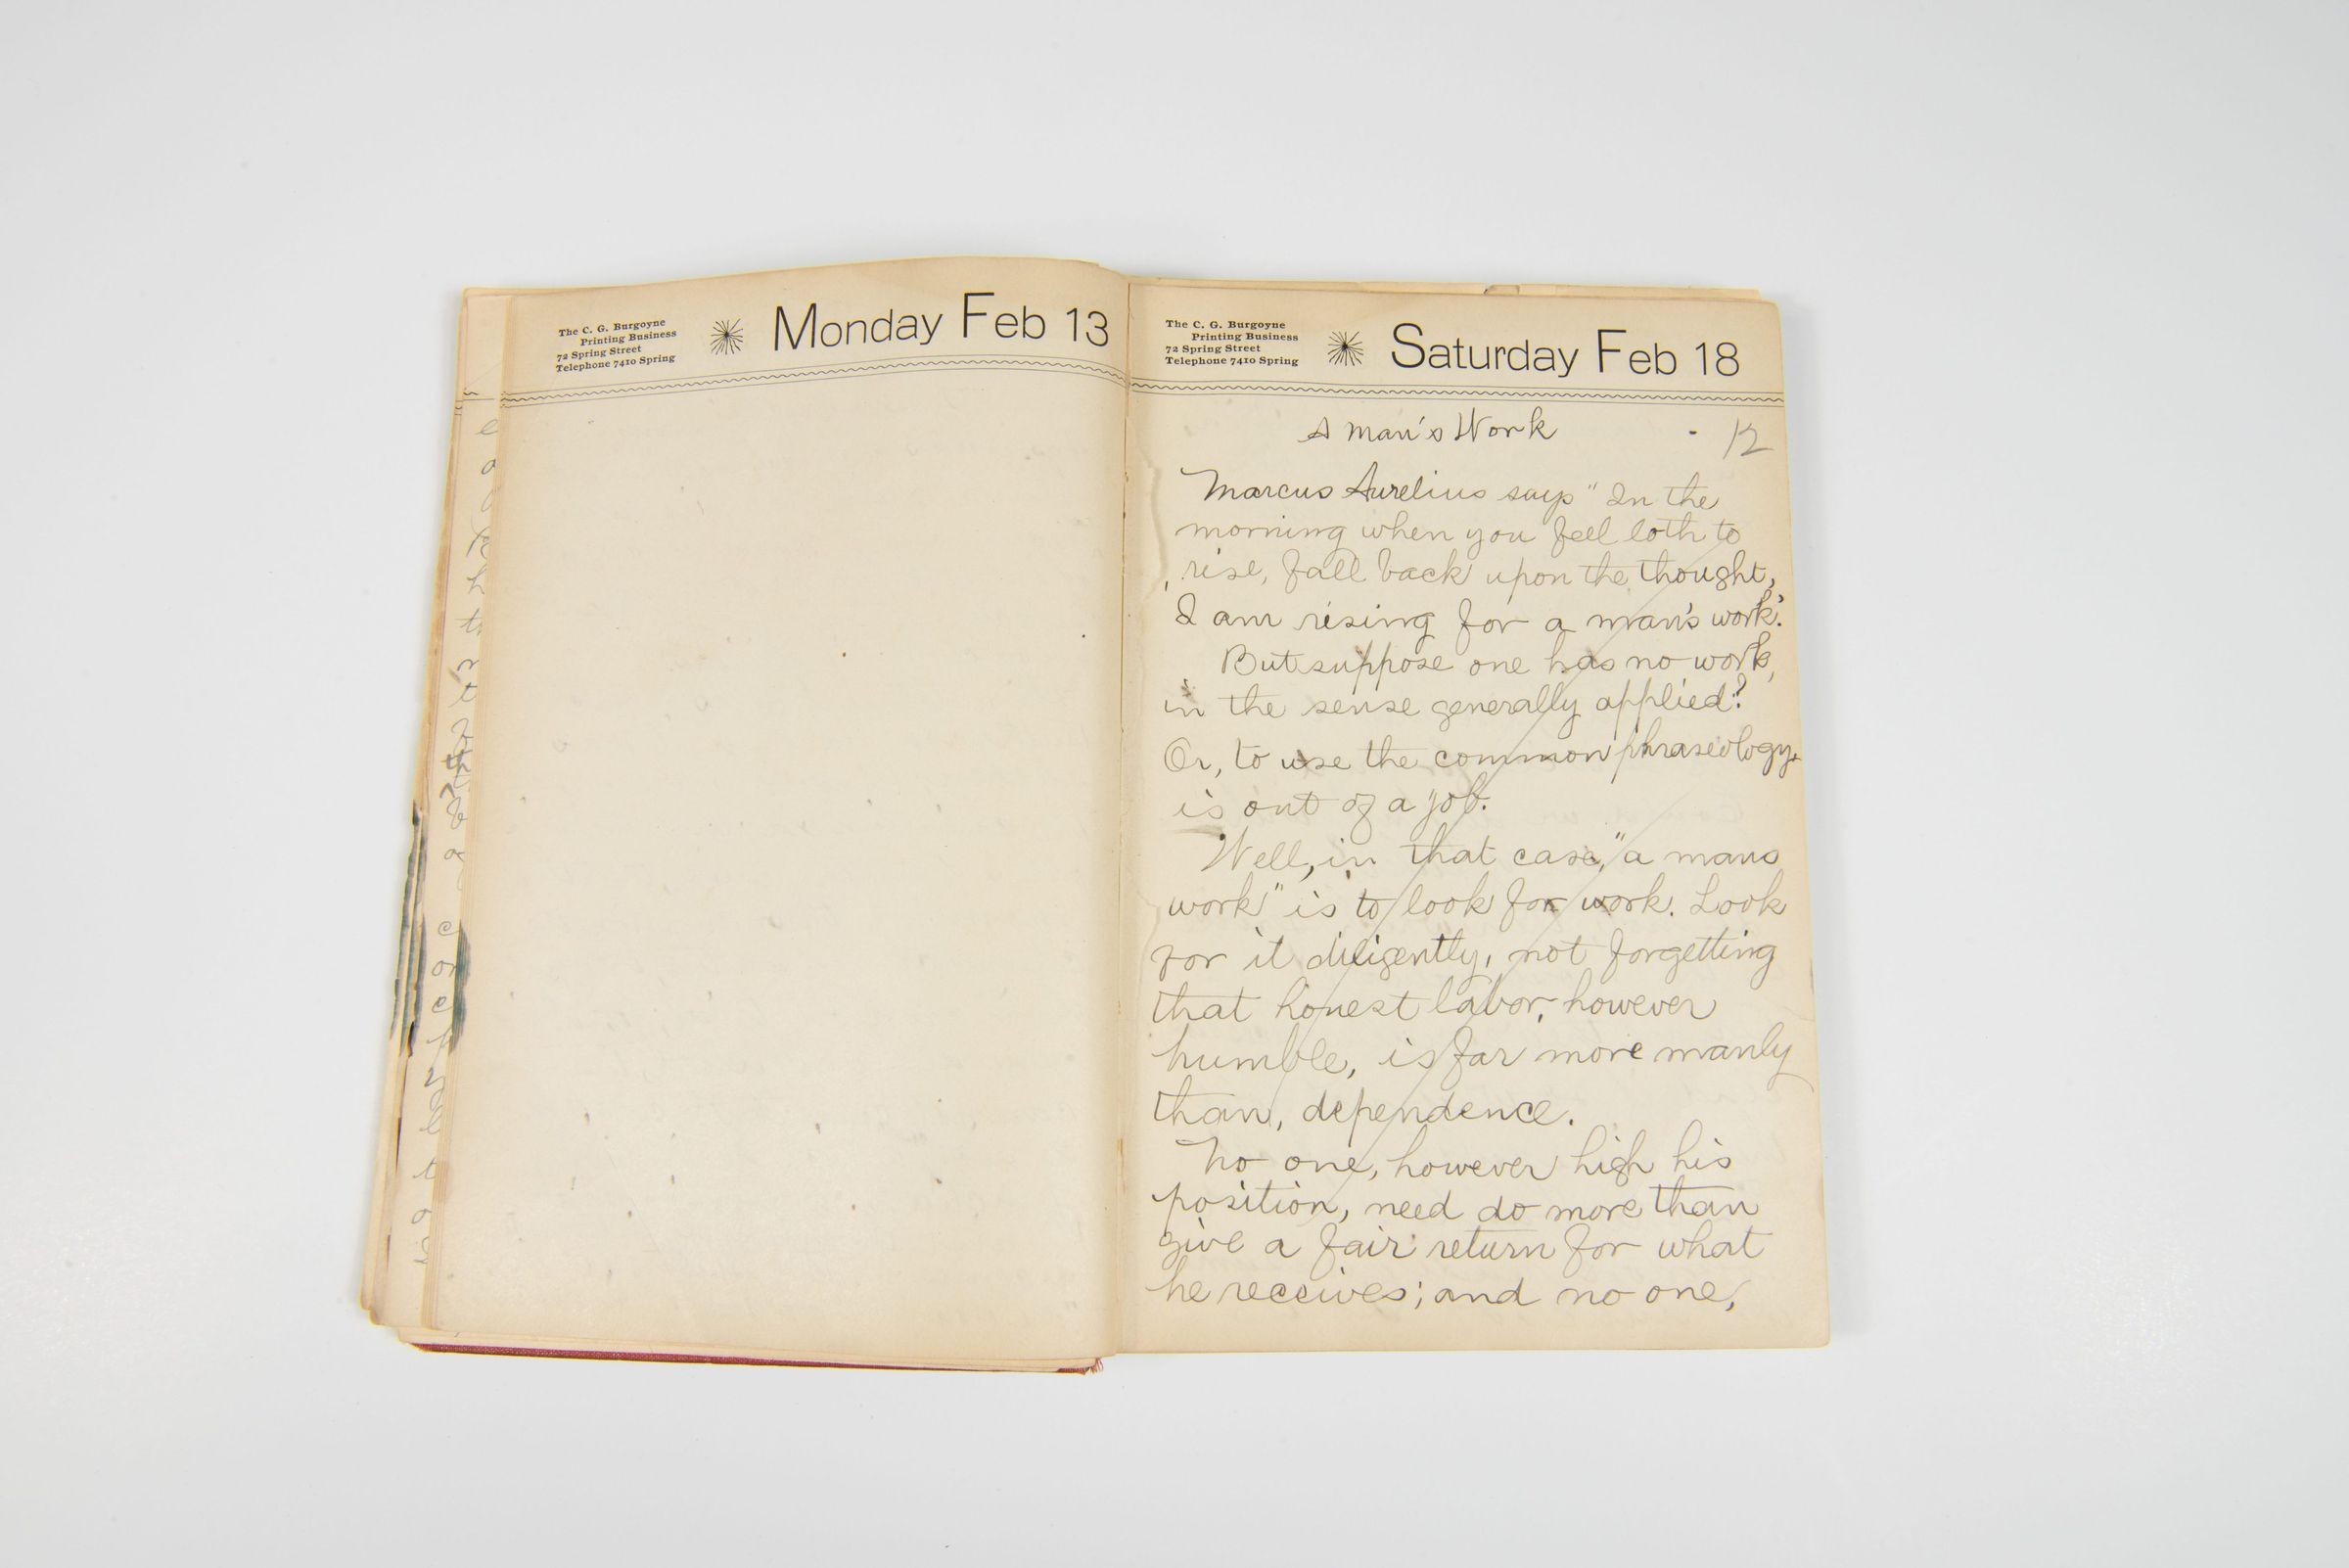 The C. G. Burgoyne
Printing Business
72 Spring Street
Telephone 7410 Spring
Monday Feb 13
The C. G. Burgoyne
Printing Business
72 Spring Street
Telephone 7410 Spring
Saturday Feb 18
A man's Work
12
Marcus Aurelius says "In the
morning when you feel loth to
rise, fall back upon the thought,
'I am rising for a man's work.'
But suppose one has no work,
in the sense generally applied?
Or, to use the common phraseology,
is out of a job.
Well, in that case, "a mans
work" is to look for work. Look
for it diligently, not forgetting
that honest labor, however
humble, is far more manly
than, dependence.
No one, however high his
position, need do more than
give a fair return for what
he receives; and no one,